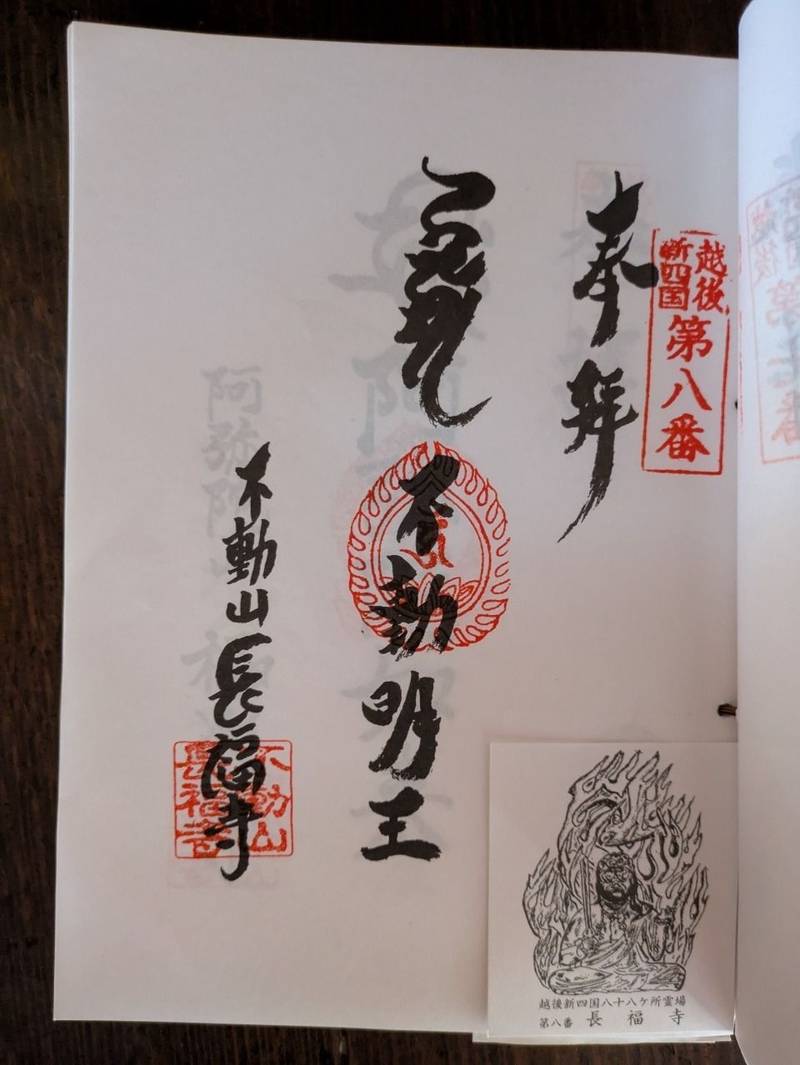 越後
新四国
第八番
奉拝
不動明王
不動山長福寺
不動山
長福寺
越後新四国八十八ケ所霊場
第八番 長福寺